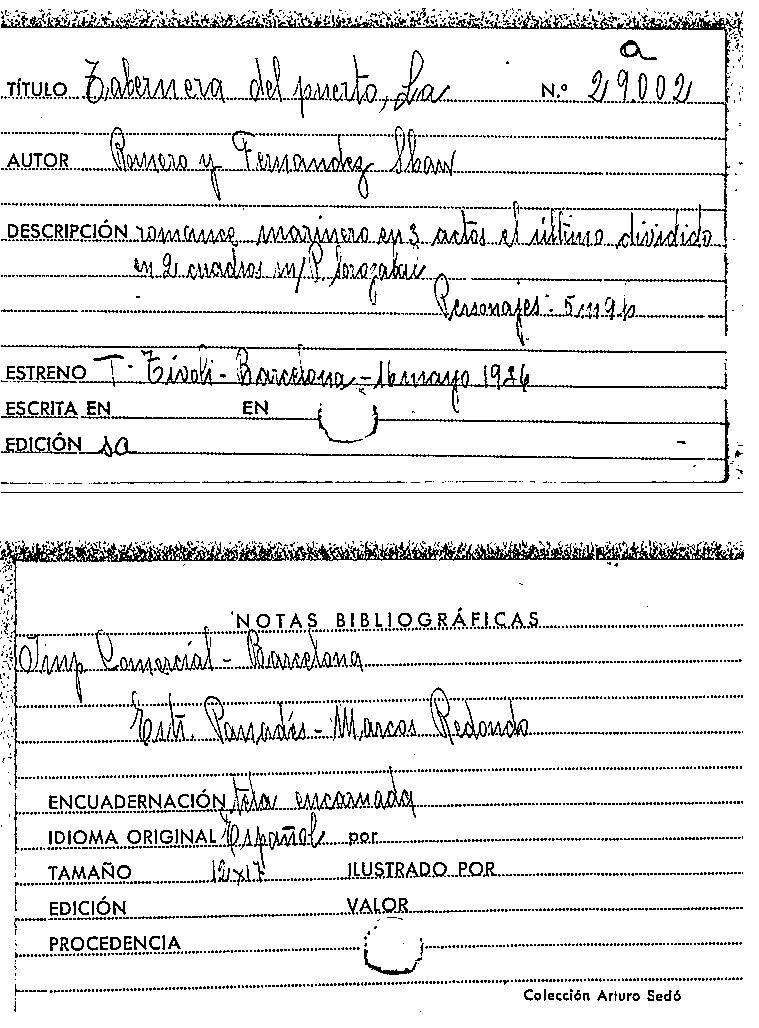 a
TÍTULO Tabernera del puerto, La N.º 29.002
AUTOR Romero y Fernandez Shaw
DESCRIPCIÓN romance marinero en 3 actos el último dividido
en 2 cuadros m/P. Sorozabal
Personajes: 5m 9h
ESTRENO T. Tívoli - Barcelona - 16 mayo 1936
ESCRITA EN EN
EDICIÓN sa
NOTAS BIBLIOGRÁFICAS
Imp Comercial - Barcelona
Estr. Panadés - Marcos Redondo
ENCUADERNACIÓN tela encarnada
IDIOMA ORIGINAL Español por
TAMAÑO 12x17 ILUSTRADO POR
EDICIÓN VALOR
PROCEDENCIA
Colección Arturo Sedó